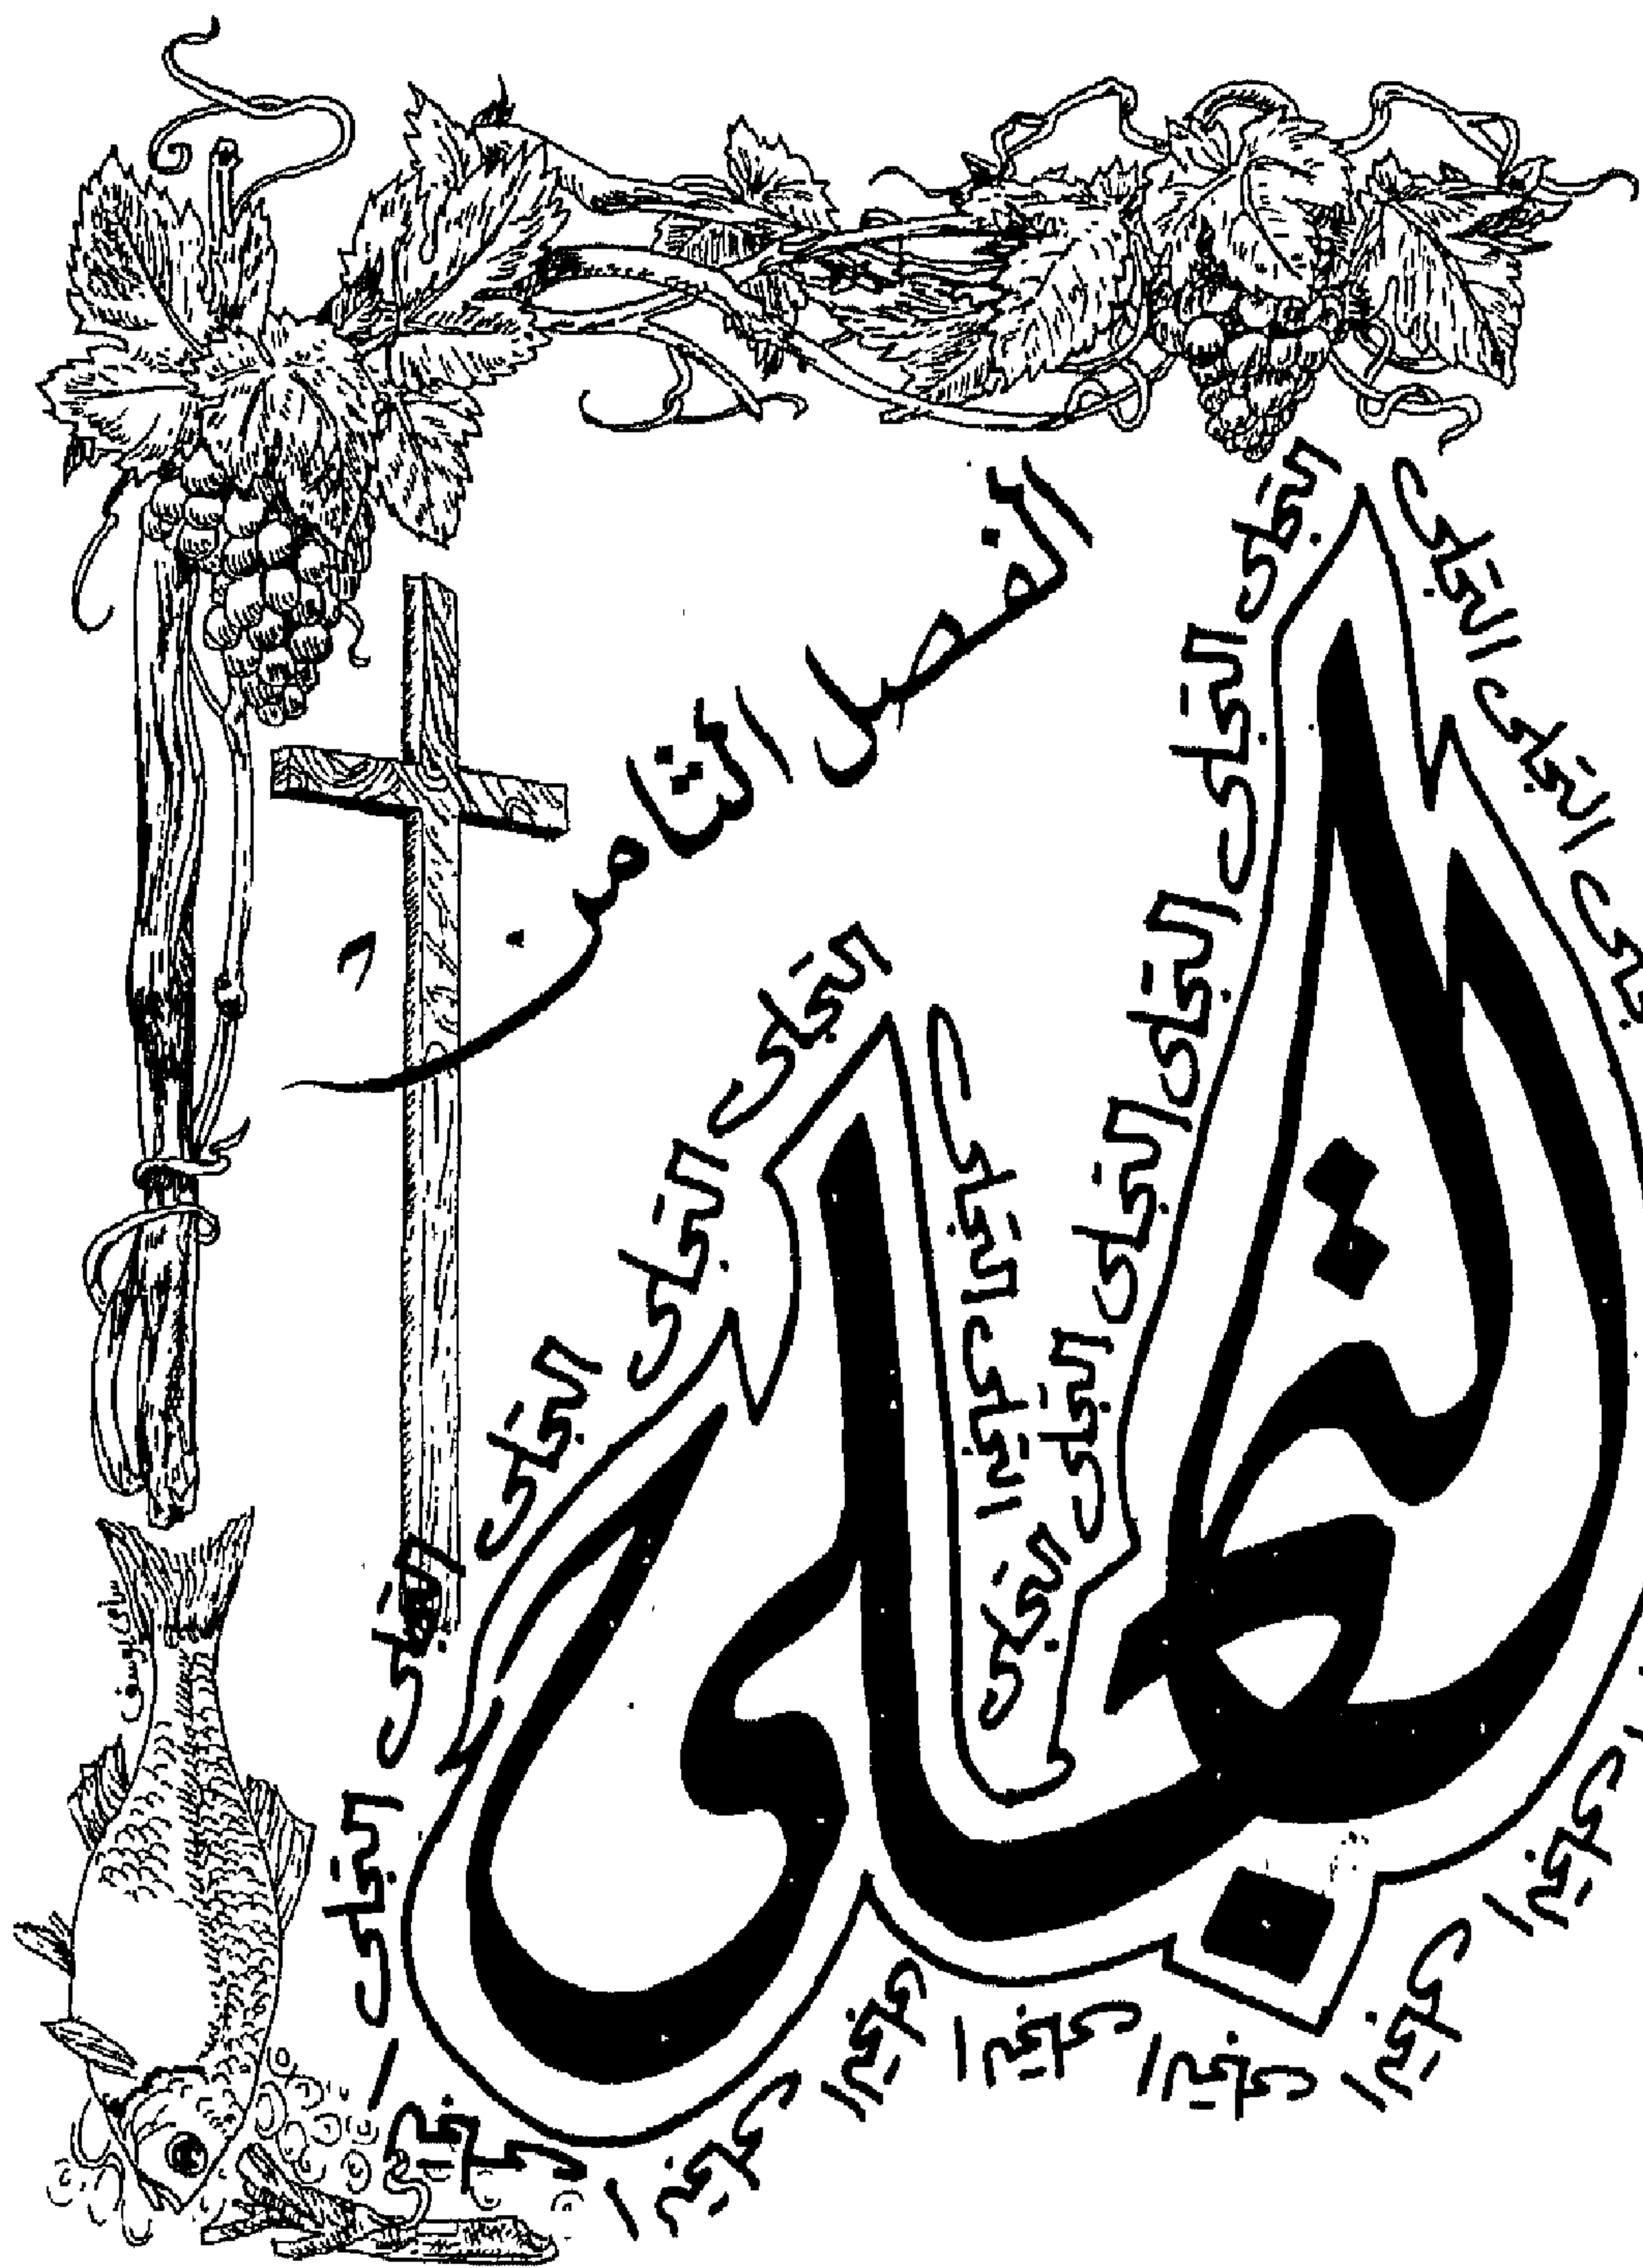 الفصل الثامن
التجلى
التجلى التجلى التجلى التجلى التجلى التجلى
التجلى التجلى
التجلى التجلى
التجلى التجلى التجلى التجلى التجلى
التجلى التجلى التجلى التجلى التجلى التجلى